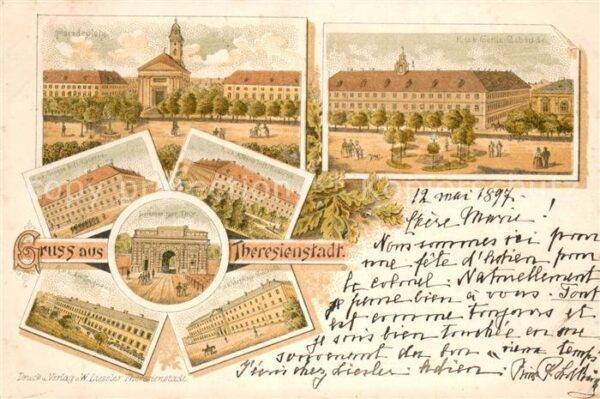 Paradeplatz
K. u. k. Genie-Gebäude
Gruss aus Theresienstadt.
12 mai 1897.
Chère Marie!
Nous sommes ici pour
une fête d'adieu pour
le colonel. Naturellement
je pense bien à vous. Tout
est comme toujours et
je suis bien touchée en me
souvenant du bon vieux temps.
J'écris chez Adieu.
Druck u. Verlag v. W. Liessler Theresienstadt.